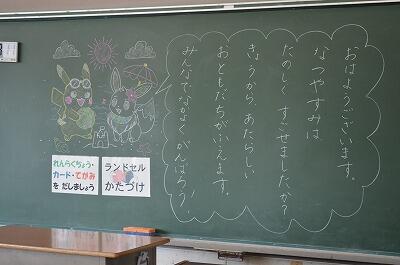 おはようございます。
なつやすみは
たのしく すごせましたか?
きょうから、あたらしい
おともだちがふえます。
みんなでなかよくがんばろう!
れんらくちょう・
カード・てがみ
を だしましょう
ランドセル
かたづけ